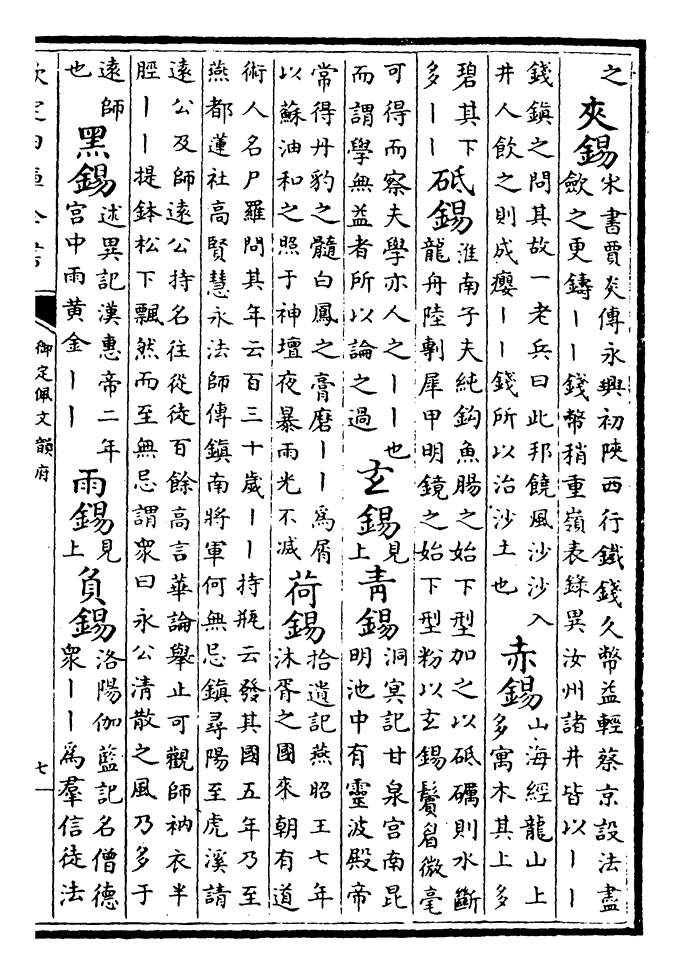 之
夾錫
宋書賈炎傳永興初陝西行鐵錢久幣益輕蔡京設法盡
斂之更鑄丨丨錢幣稍重嶺表錄異汝州諸井皆以丨丨
錢鎮之問其故一老兵曰此邦饒風沙沙入
井人飲之則成癭丨丨錢所以治沙土也
赤錫
山海經龍山上
多寓木其上多
碧其下
多丨丨
砥錫
淮南子夫純鈎魚腸之始下型加之以砥礪則水斷
龍舟陸剸犀甲明鏡之始下型粉以玄錫鬢眉微毫
可得而察夫學亦人之丨丨也
而謂學無益者所以論之過
玄錫
見
上
青錫
洞冥記甘泉宮南昆
明池中有靈波殿帝
常得丹豹之髓白鳳之膏磨丨丨為屑
以蘇油和之照于神壇夜暴雨光不減
荷錫
拾遺記燕昭王七年
沐胥之國來朝有道
術人名尸羅問其年云百三十歲丨丨持瓶云發其國五年乃至
燕都蓮社高賢慧永法師傳鎮南將軍何無忌鎮尋陽至虎溪請
遠公及師遠公持名往從徒百餘高言華論舉止可觀師衲衣半
脛丨丨提鉢松下飄然而至無忌謂衆曰永公清散之風乃多于
遠師
也
黑錫
述異記漢惠帝二年
宮中雨黃金丨丨
雨錫
見
上
負錫
洛陽伽藍記名僧德
衆丨丨為羣信徒法
欽定四庫全書
御定佩文韻府
七一